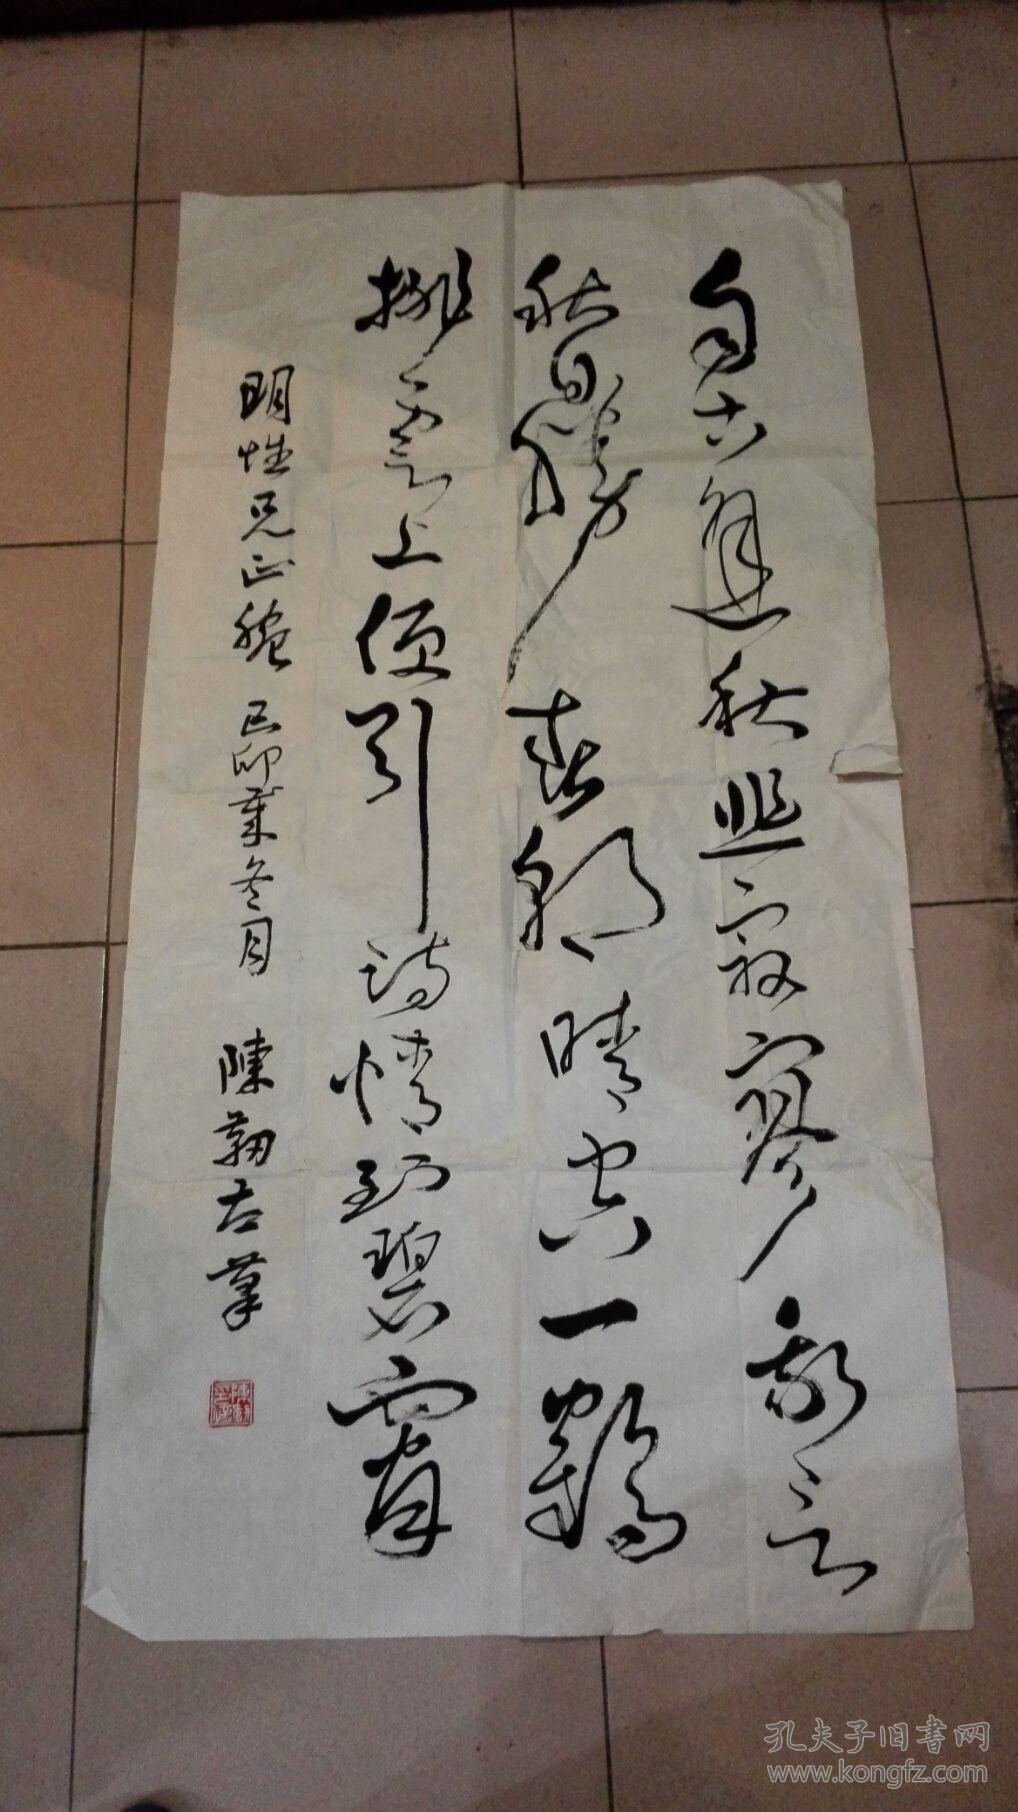 自古逢秋悲寂寥我言
秋日勝春朝晴空一鶴
排雲上便引詩情到碧霄
明性兄正腕 己卯年冬月 陳 古筆
孔夫子旧书网
www.kongfz.com